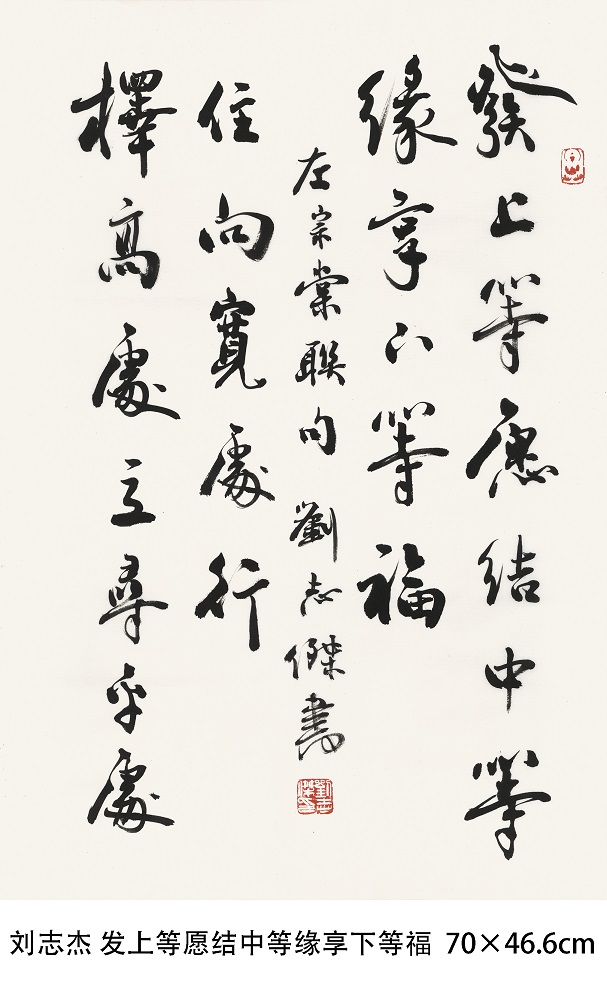 發上等愿结中等
緣享下等福
擇高處立尋平處
住向寬處行
左宗棠聯句 劉志傑書
刘志杰 发上等愿结中等缘享下等福 70×46.6cm